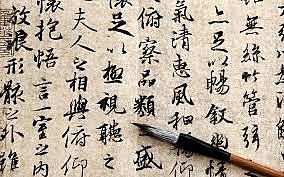 無絲竹管弦
足以暢叙幽情
氣清惠風和暢仰
俯察品類盛
懷足以極視聽之
夫人之相與俯仰
懷抱悟言一室之内
放浪形骸之外雖